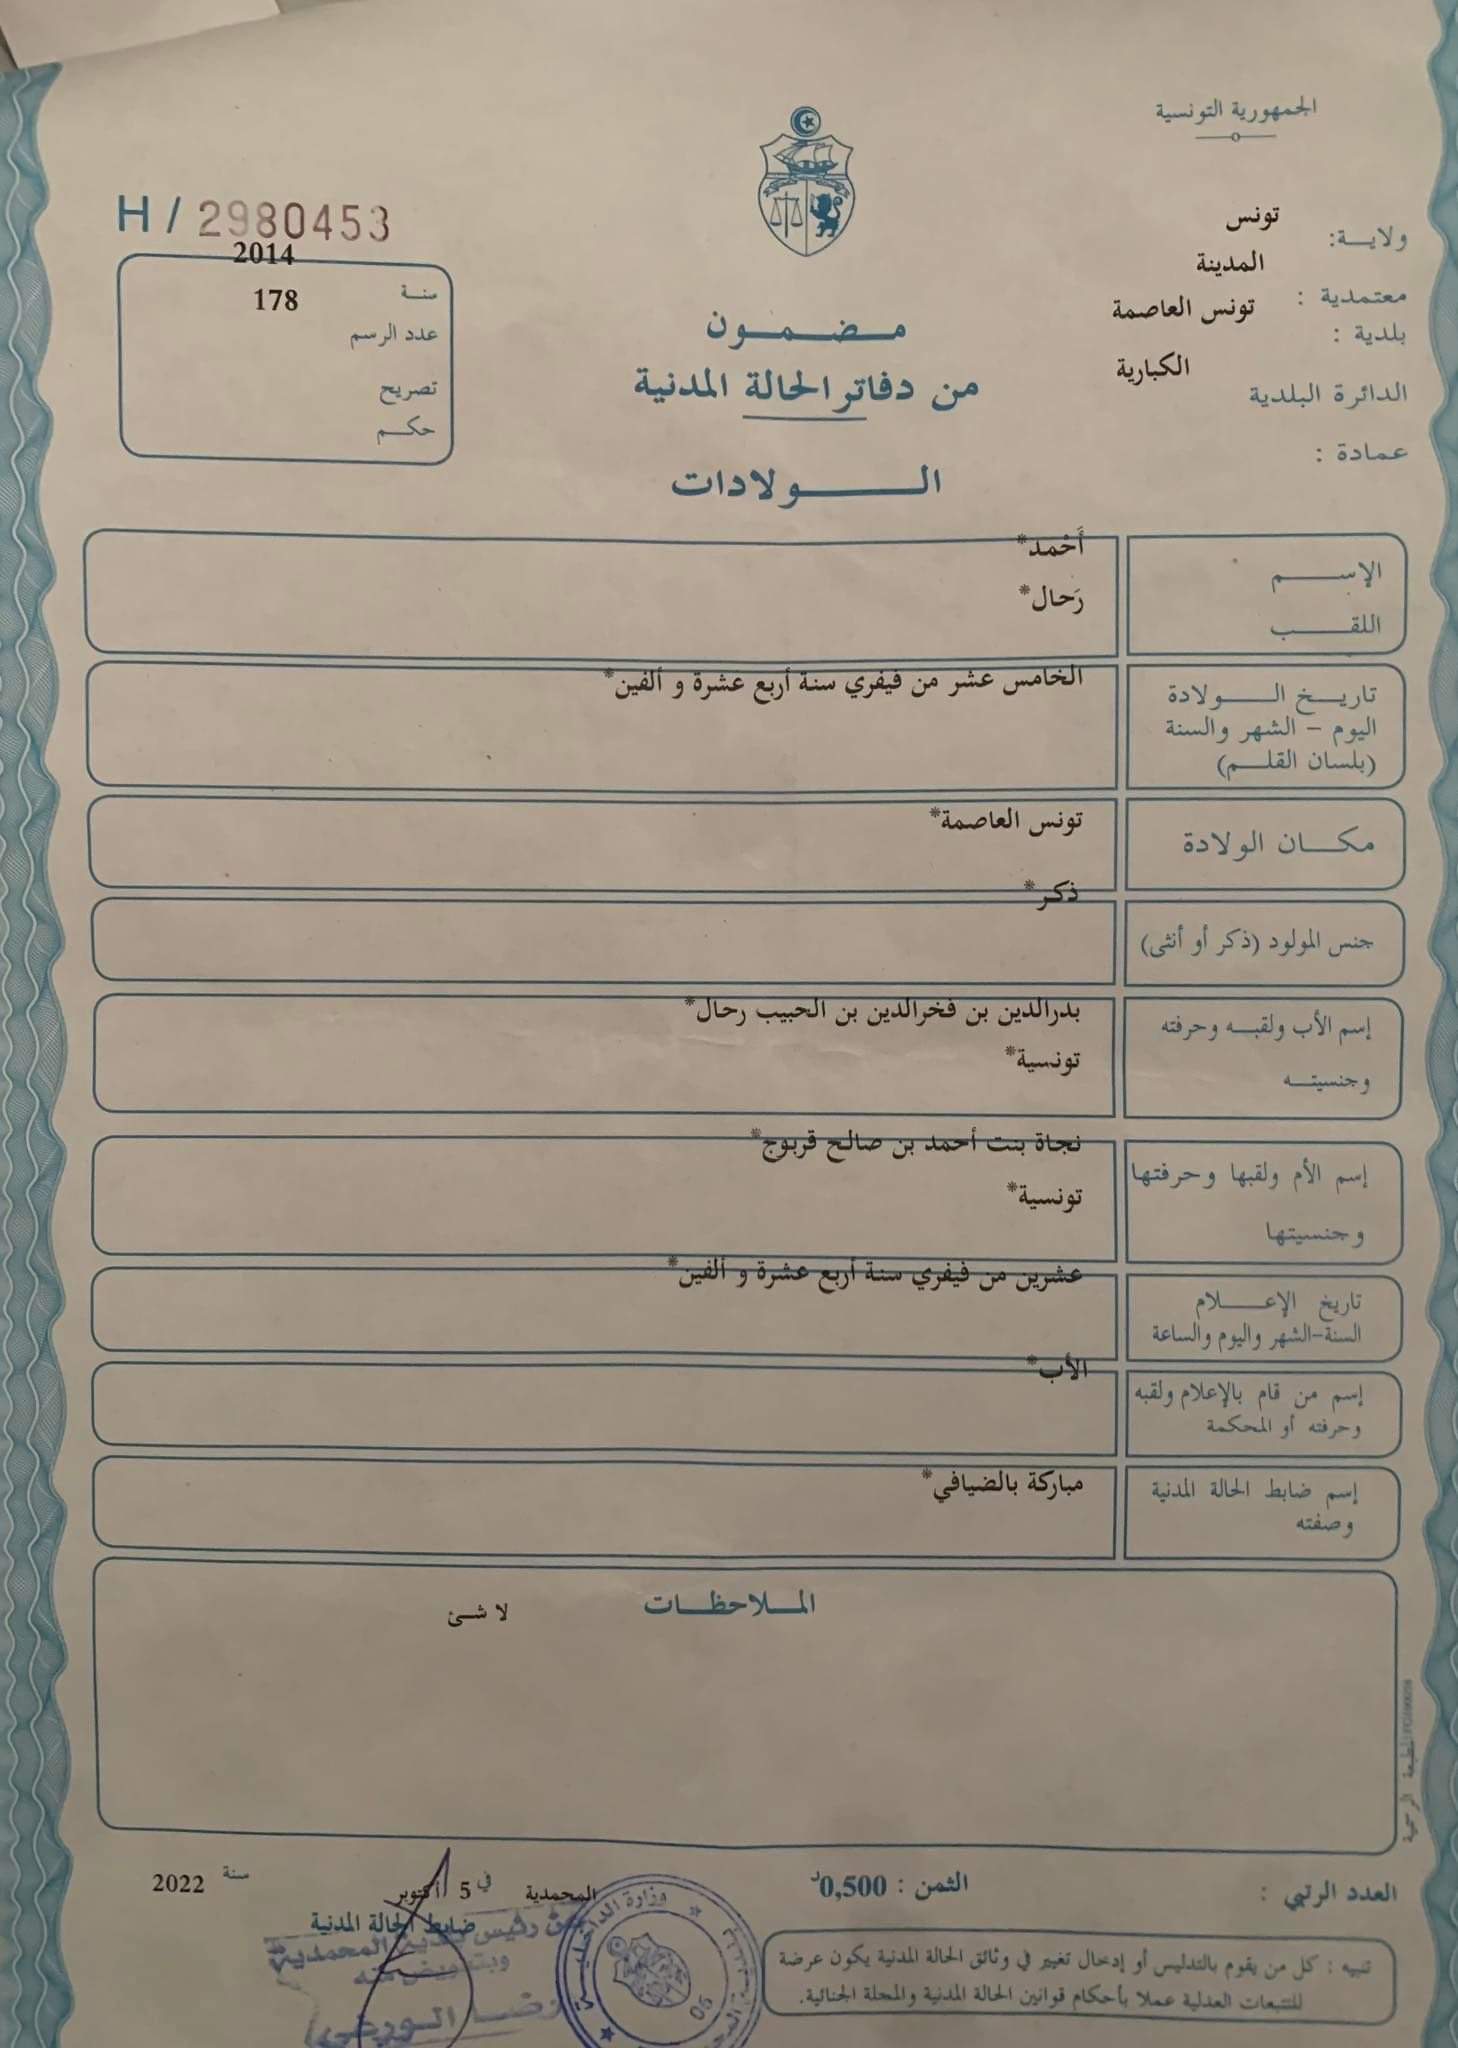 الجمهورية التونسية
ولايـة: تونس
معتمدية : المدينة
بلدية : تونس العاصمة
الدائرة البلدية الكبارية
عمادة :
H / 2980453
سنة 2014
عدد الرسم 178
تصريح
حكم
مضمون
من دفاتر الحالة المدنية
الولادات
الإسم أَحْمد*
اللقب رَحال*
تاريخ الولادة الخامس عشر من فيفري سنة أربع عشرة و ألفين*
اليوم – الشهر والسنة
(بلسان القلم)
مكان الولادة تونس العاصمة*
جنس المولود (ذكر أو أنثى) ذكر*
إسم الأب ولقبه وحرفته بدرالدين بن فخرالدين بن الحبيب رحال*
وجنسيته تونسية*
إسم الأم ولقبها وحرفتها نجاة بنت أحمد بن صالح قربوج*
وجنسيتها تونسية*
تاريخ الإعلام عشرين من فيفري سنة أربع عشرة و ألفين*
السنة-الشهر واليوم والساعة
إسم من قام بالإعلام ولقبه الأب*
وحرفته أو المحكمة
إسم ضابط الحالة المدنية مباركة بالضيافي*
وصفته
الملاحظات
لا شئ
المطبعة الرسمية
العدد الرتبي :
الثمن : 0,500د
المحمدية في 5 أكتوبر سنة 2022
ضابط الحالة المدنية
عن رئيس بلدية المحمدية
وبتفويض منه
وزارة الداخلية
05
تنبيه : كل من يقوم بالتدليس أو إدخال تغيير في وثائق الحالة المدنية يكون عرضة
للتتبعات العدلية عملا بأحكام قوانين الحالة المدنية والمجلة الجنائية.